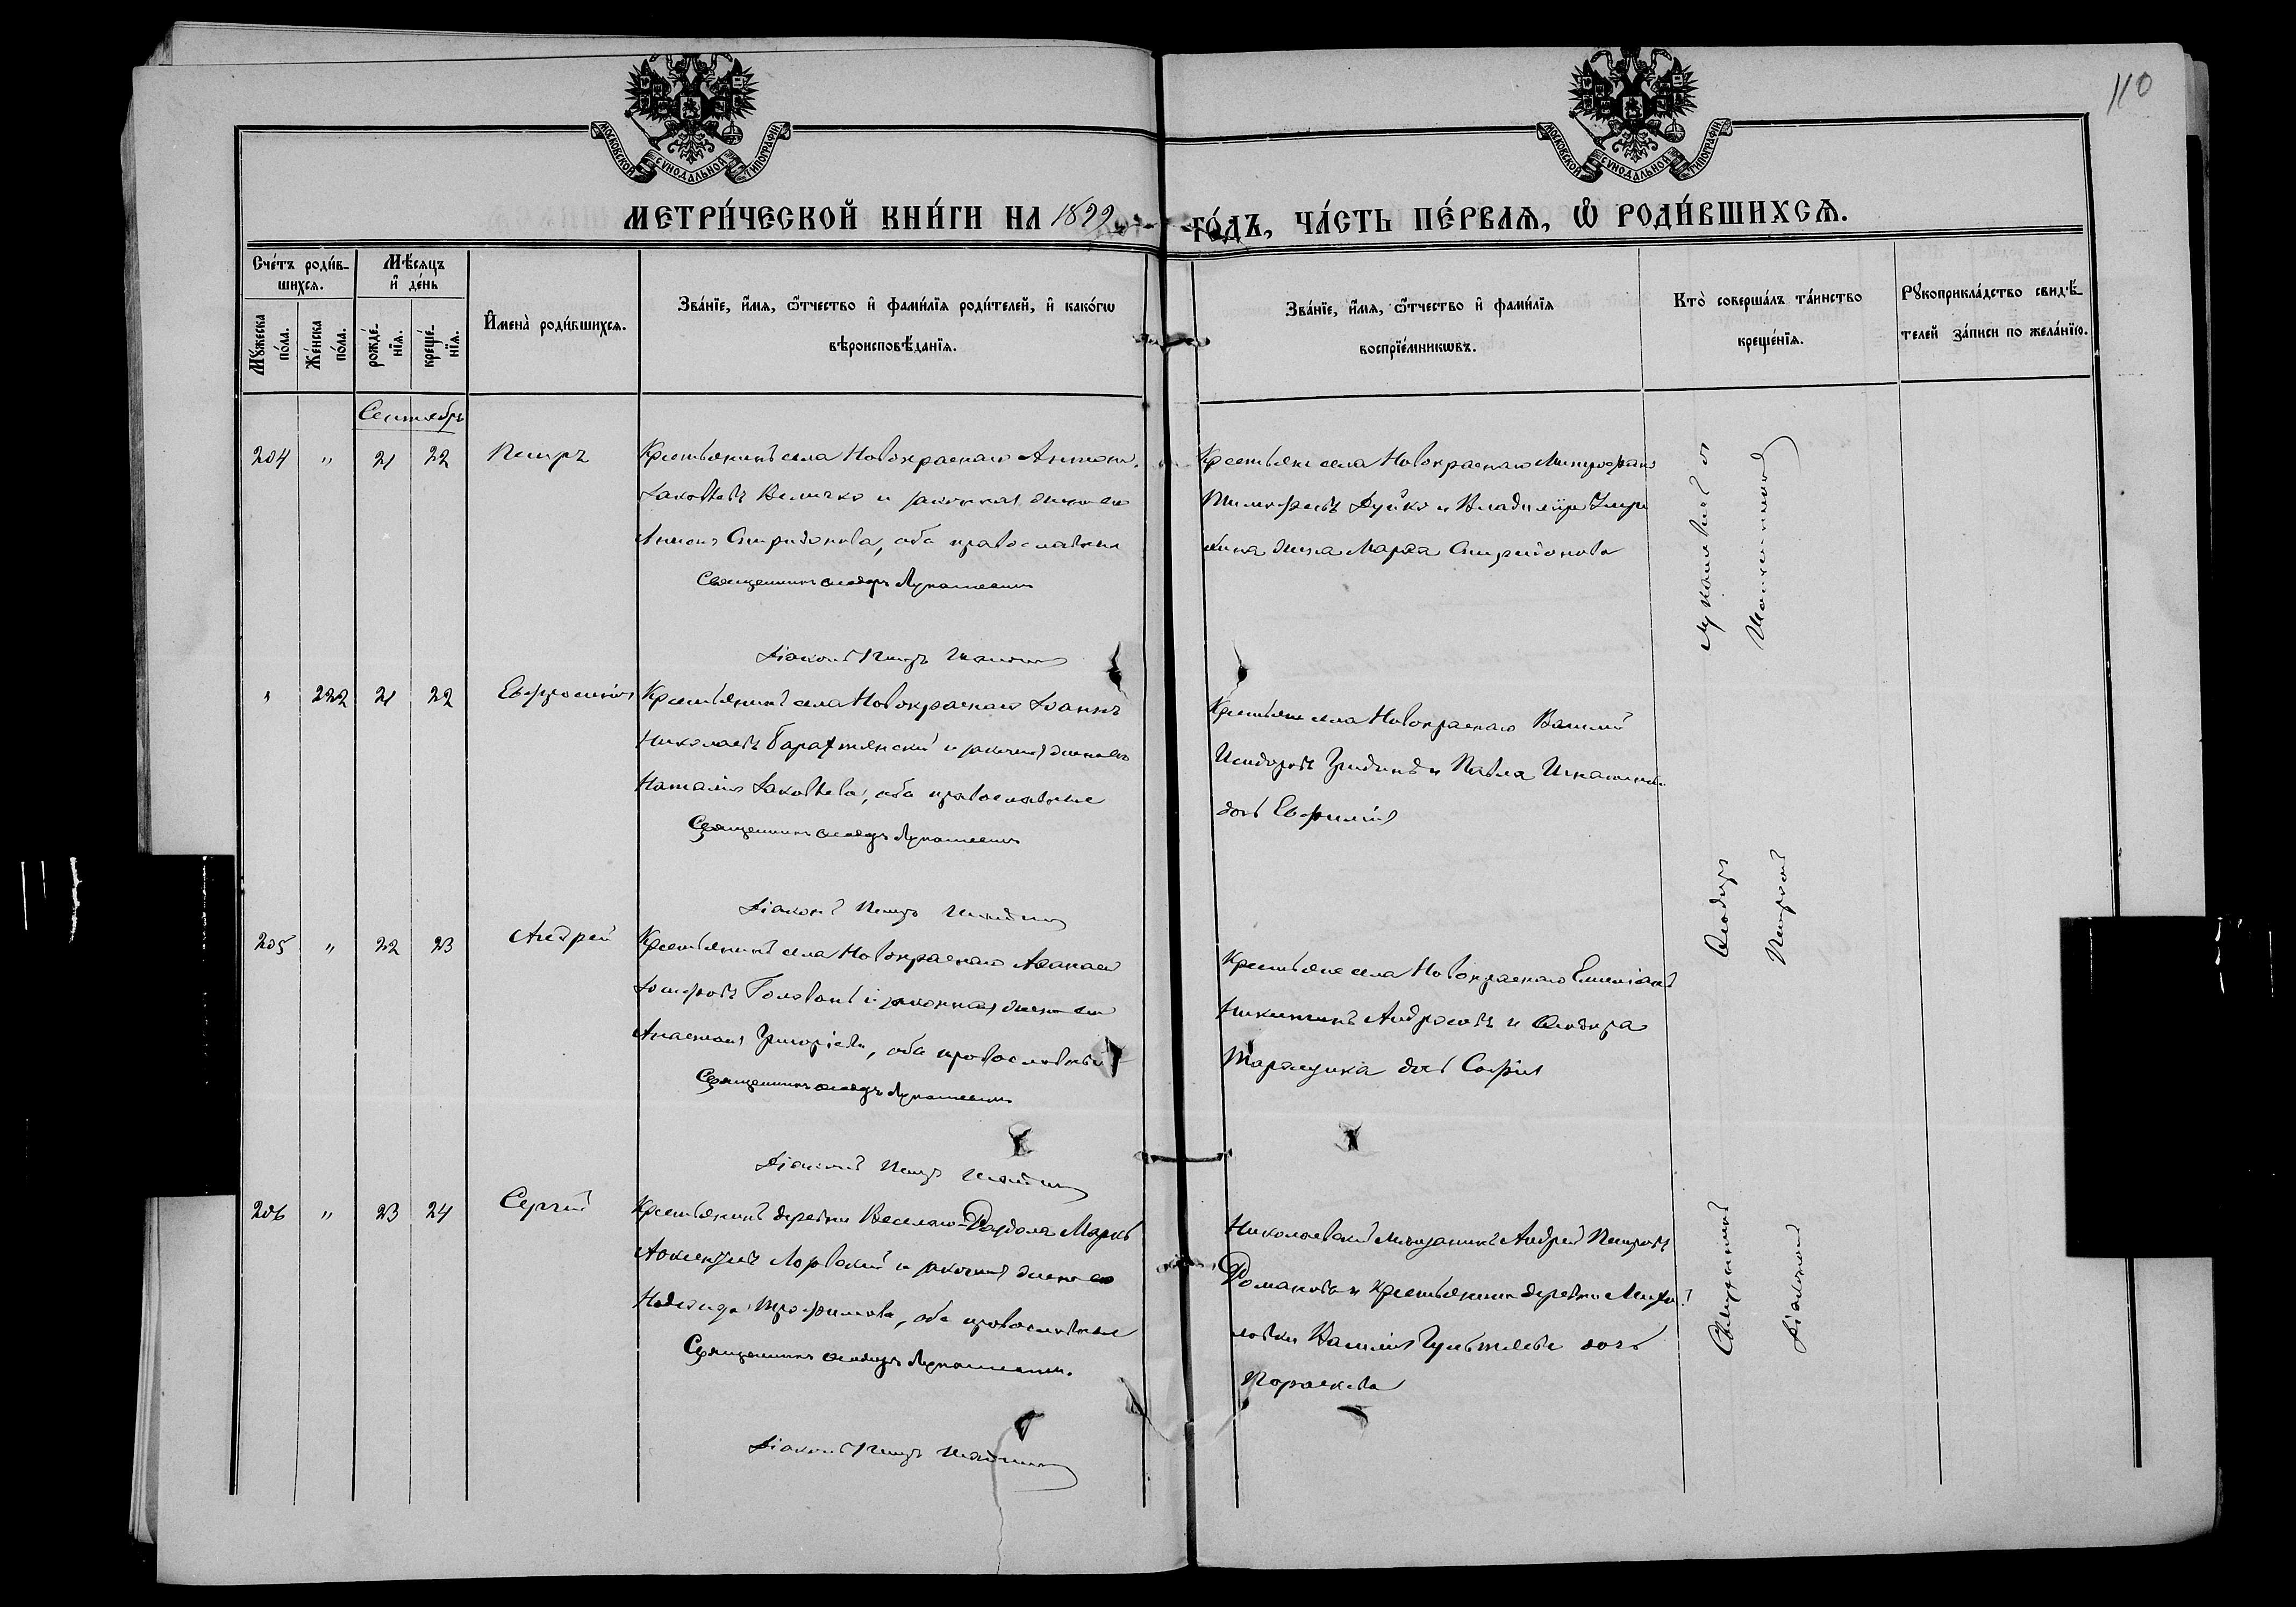 110
МОСКОВСКОЙ СѴНОДАЛЬНОЙ ТИПОГРАФІИ
МОСКОВСКОЙ СѴНОДАЛЬНОЙ ТИПОГРАФІИ
МЕТРИ́ЧЕСКОЙ КНИ́ГИ НА 1899
ГО́ДЪ, ЧА́СТЬ ПЕ́РВАѦ, Ѽ РОДИ́ВШИХСѦ.
Сче́тъ роди́в-
шихсѧ.
Мѣ́сѧцъ
и҆ де́нь
Мꙋ́жеска
по́ла.
Же́нска
по́ла.
рожде́-
нїѧ.
креще́-
нїѧ.
И҆мена̀ роди́вшихсѧ.
Зва́нїе, и҆́мѧ, ѻ҆́тчество и҆ фами́лїѧ роди́телей, и҆ како́гѡ
вѣроисповѣ́данїѧ.
Зва́нїе, и҆́мѧ, ѻ҆́тчество и҆ фами́лїѧ
воспрїе́мникѡвъ.
Кто̀ соверша́лъ та́инство
креще́нїѧ.
Рꙋкоприкла́дство свидѣ́-
телей за́писи по жела́нїю.
Сентябрь
204 " 21 22 Петръ
Крестьянинъ села Новокраснаго Антонъ
Іаковлевъ Величко и законная жена его
Спиридонова, оба православные
Священникъ Ѳеодоръ Лукашевичъ
Діаконъ Петръ
Крестьяне села Новокраснаго Митрофанъ
Дуйко и Владиміра
жена Марѳа Спиридонова
" 222 21 22 Евфросинія
Крестьянинъ села Новокраснаго Іоаннъ
Николаевъ и законная жена его
Наталія Іаковлева, оба православные
Священникъ Ѳеодоръ Лукашевичъ
Діаконъ Петръ
Крестьяне села Новокраснаго Василій
Исидоровъ Гридинъ и Павла
дочь Евфимія
205 " 22 23 Андрей
Крестьянинъ села Новокраснаго Аѳанасій
Іосифовъ Голованъ и законная жена его
Анастасія Григоріева, оба православные
Священникъ Ѳеодоръ Лукашевичъ
Діаконъ Петръ
Крестьяне села Новокраснаго Емеліанъ
Никитинъ Андросовъ и Ѳеодора
Таращика дочь Софія
206 " 23 24 Сергій
Крестьянинъ деревни Веселаго-Раздола Маркъ
и законная жена его
Надежда Трофимова, оба православные
Священникъ Ѳеодоръ Лукашевичъ.
Діаконъ Петръ
Николаевскій мѣщанинъ Андрей Петровъ
Романовъ и крестьянина деревни Михай-
ловки Василія дочь
Параскева
Священникъ Ѳеодоръ Лукашевичъ съ
Діакономъ Петромъ